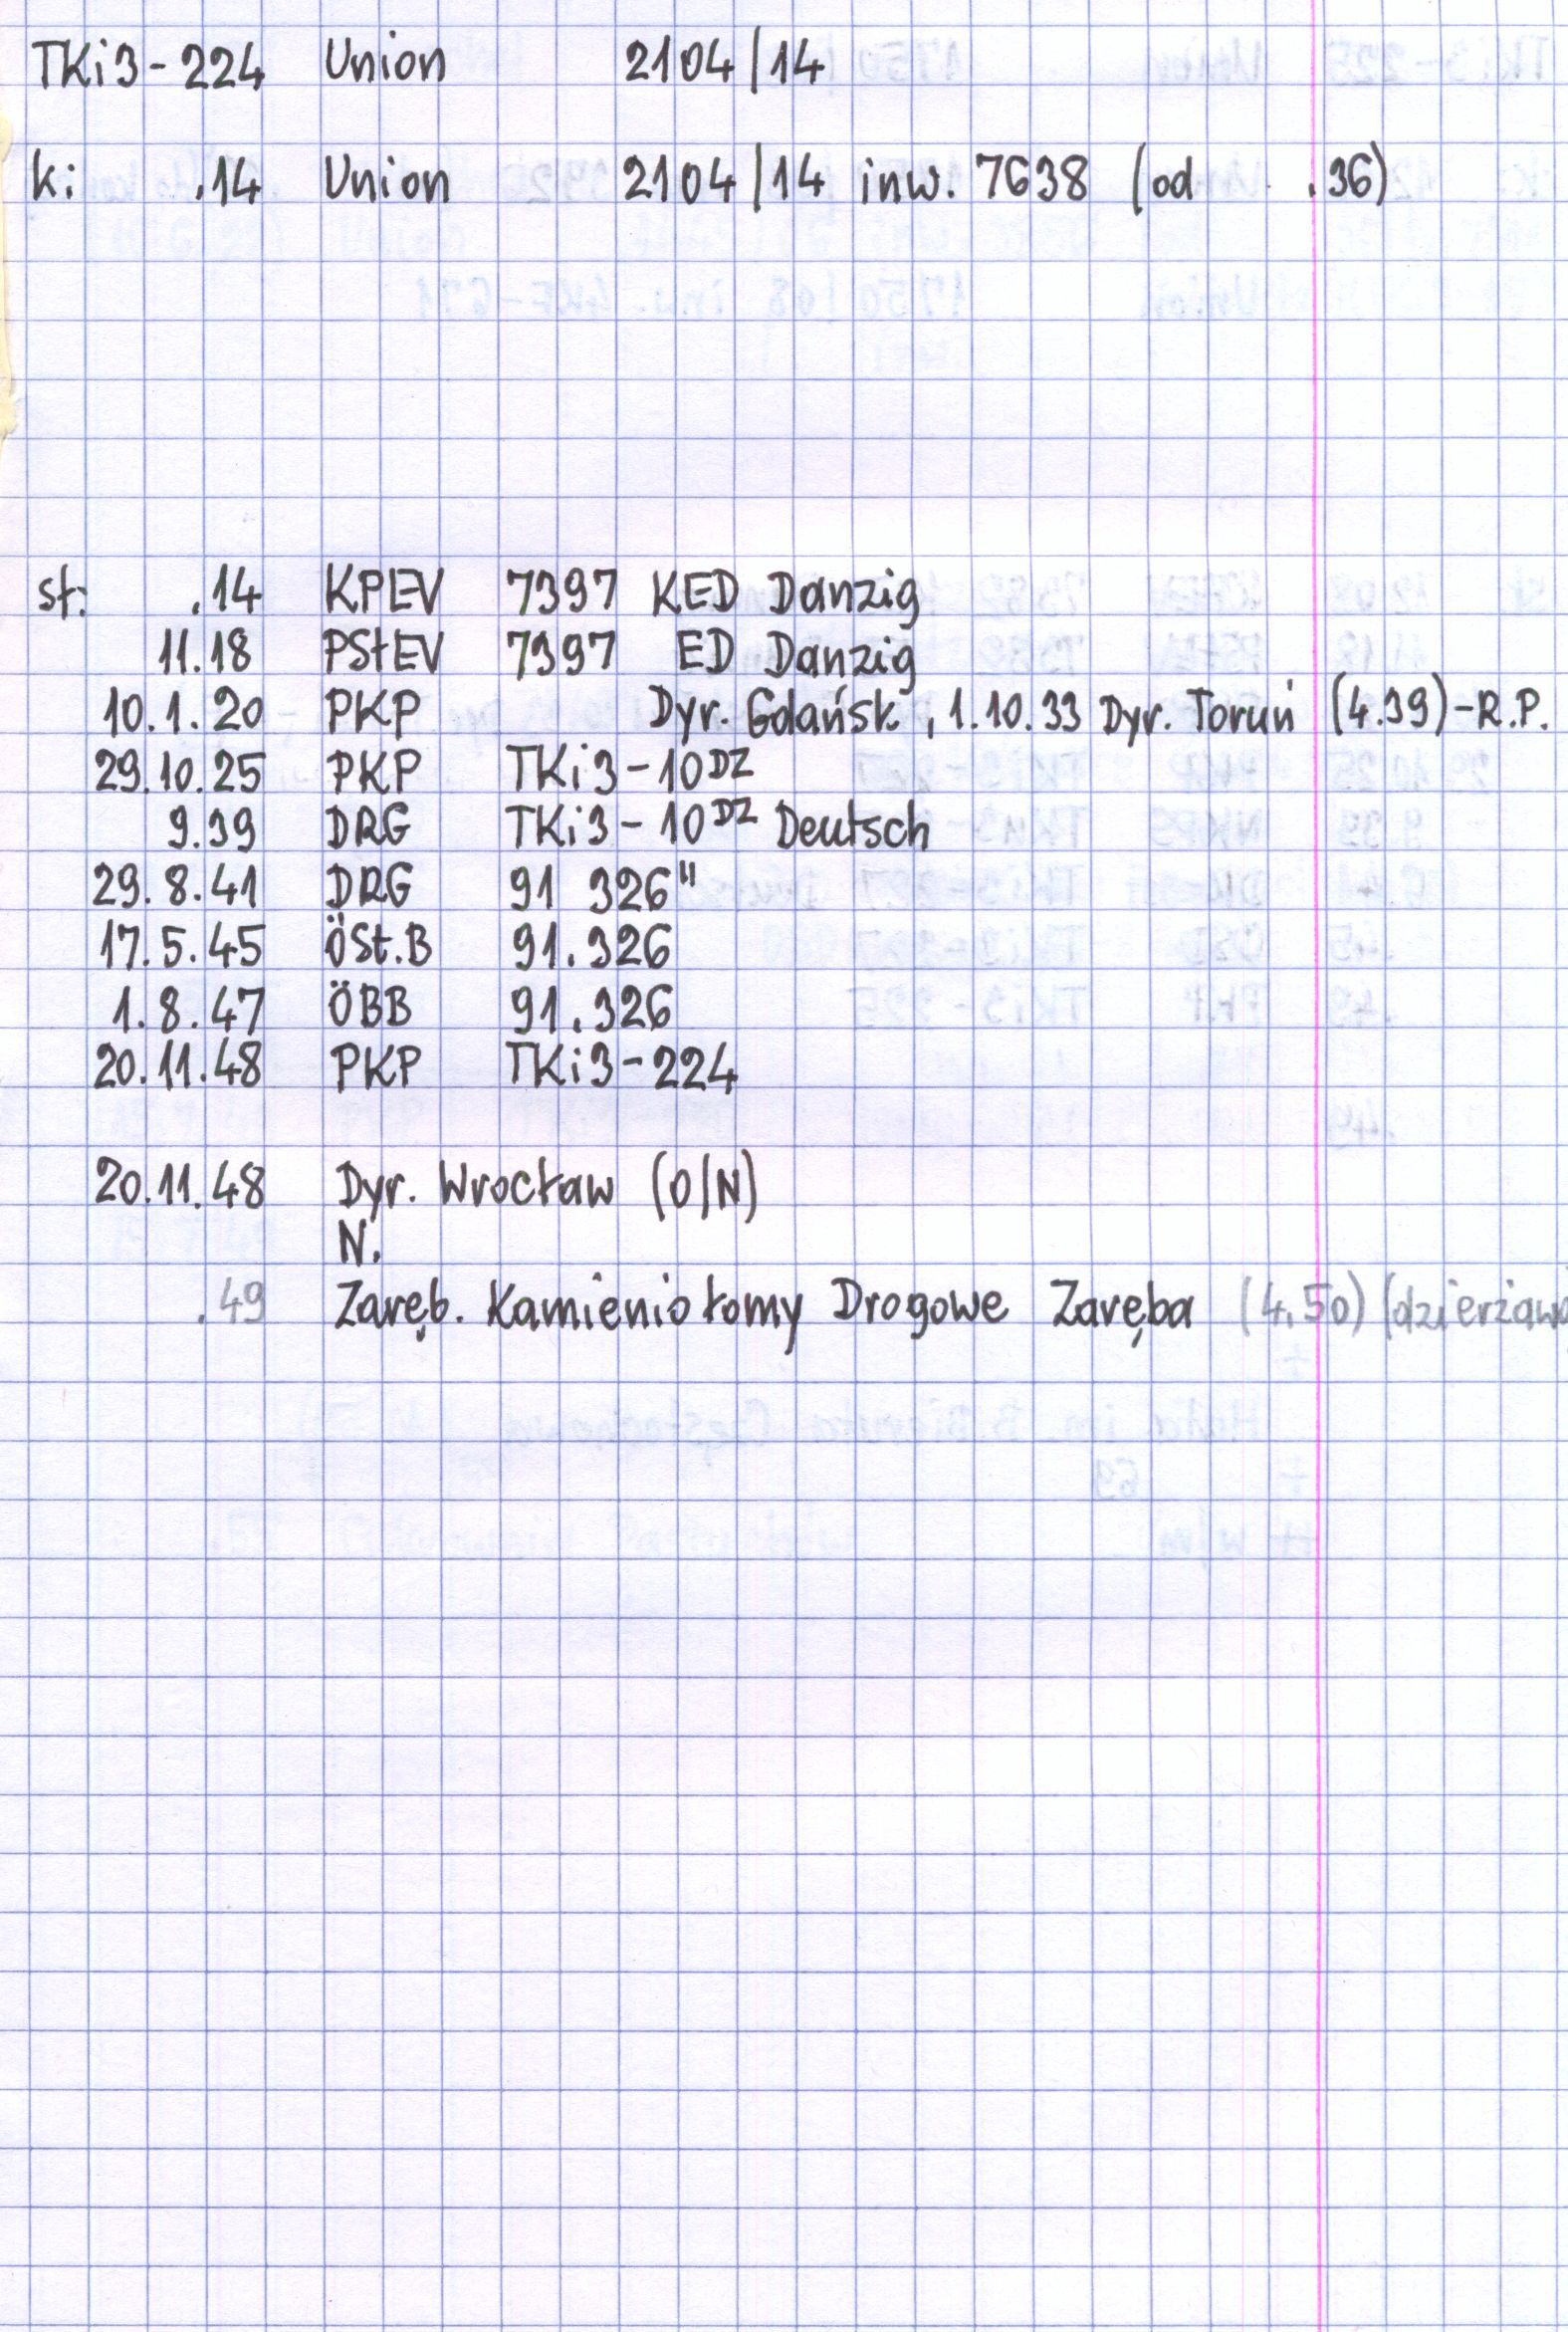 TKi3-224 Union 2104/14
ki .14 Union 2104/14 inw. 7638 (od .36)
st: .14 KPEV 7397 KED Danzig
11.18 PStEV 7397 ED Danzig
10.1.20 PKP Dyr. Gdańsk, 1.10.33 Dyr. Toruń (4.39)-R.P.
29.10.25 PKP TKi3-10DZ
9.39 DRG TKi3-10DZ Deutsch
29.8.41 DRG 91 326"
17.5.45 ÖSt.B 91.326
1.8.47 ÖBB 91.326
20.11.48 PKP TKi3-224
20.11.48 Dyr. Wrocław (O/N)
N.
.49 Zaręb. Kamieniołomy Drogowe Zaręba (4.50) (dzierżawa